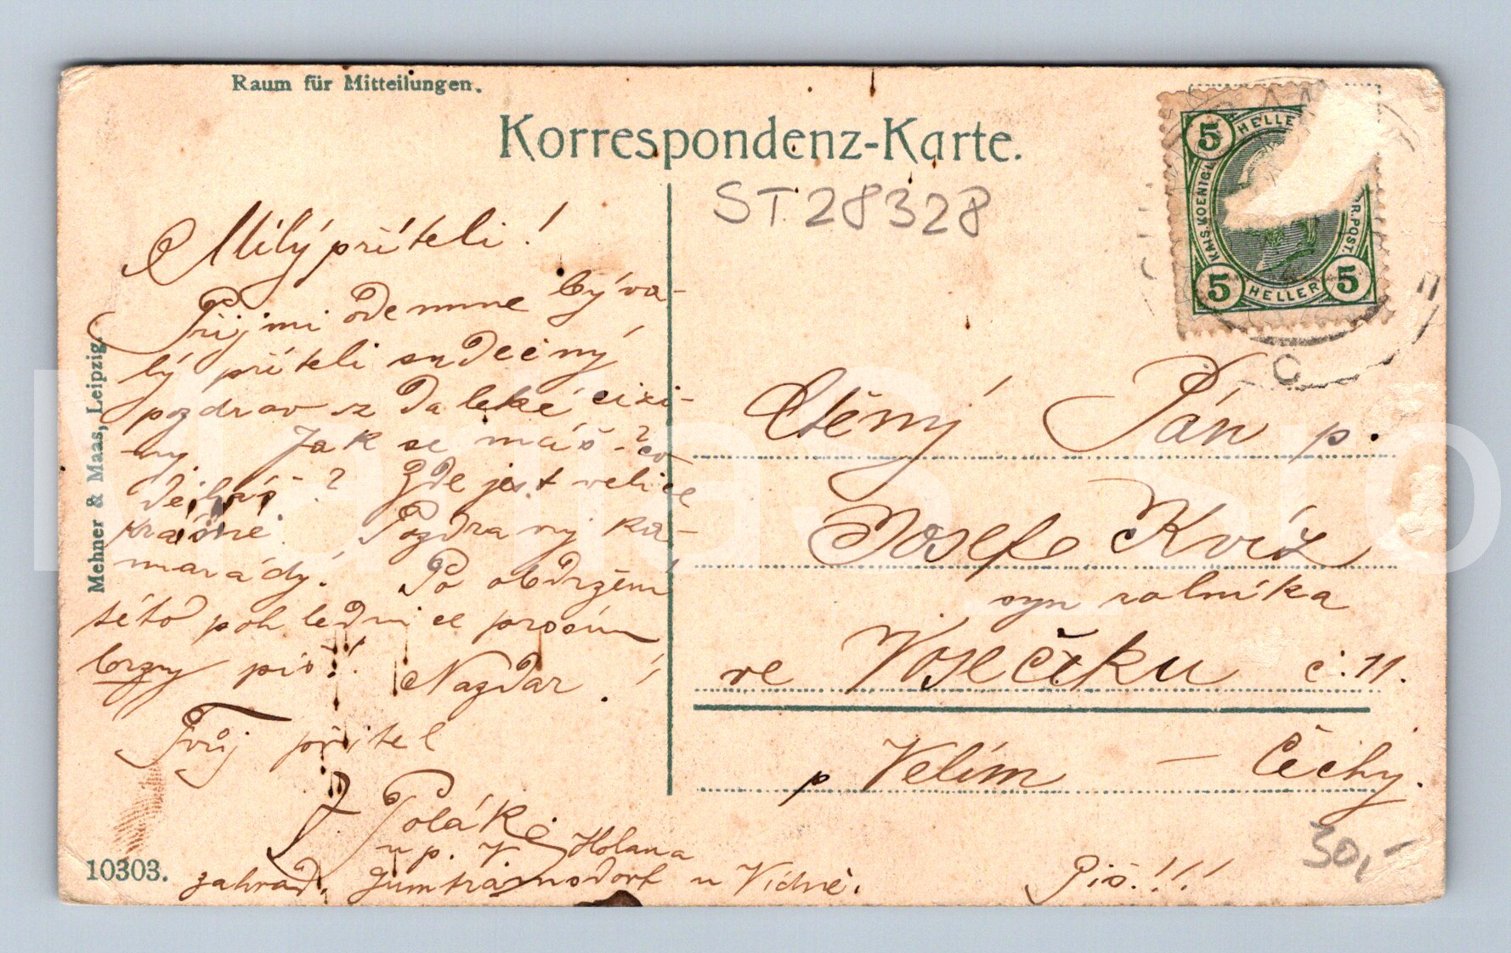 Raum für Mitteilungen.
Korrespondenz-Karte.
ST 28328
5 HELLER 5
KAIS. KOENIGL.
R. POST.
5 HELLER 5
Milý příteli!
Přijmi odemne býva-
lý příteli srdečný
pozdrav z daleké cizi-
ny Jak se máš? co
děláš? Zde jest velice
krásně. Pozdravuj ka-
marády! Po obdržení
této pohlednice prosím
brzy piš! Nazdar!
Tvůj přítel
J. Polák
u p. V. Holana
zahrad. Gumtramsdorf u Vídně.
Piš!!!
Ctěný Pán p.
Josef Kvíz
syn rolníka
ve Vosečku č. 11.
p Velím – Čechy.
30,-
Mehner & Maas, Leipzig.
10303.